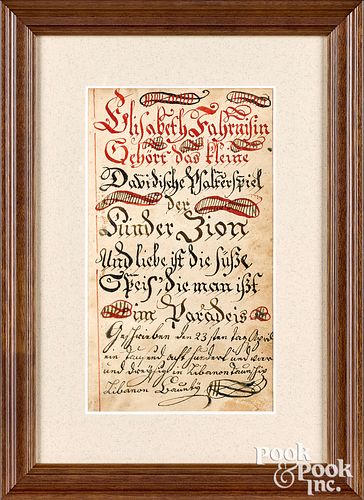 Elisabeth Fahrnisin
Gehört das kleine
Davidische Psalterspiel
der
Kinder Zion
Und liebe ist die süße
Speis, die man ißt
im Paradeis
Geschrieben den 23sten tag Aprill
ein tausend acht hundert und
und dreysig in Libanon Taunschip
Libanon Caunty
POOK
& POOK
INC.